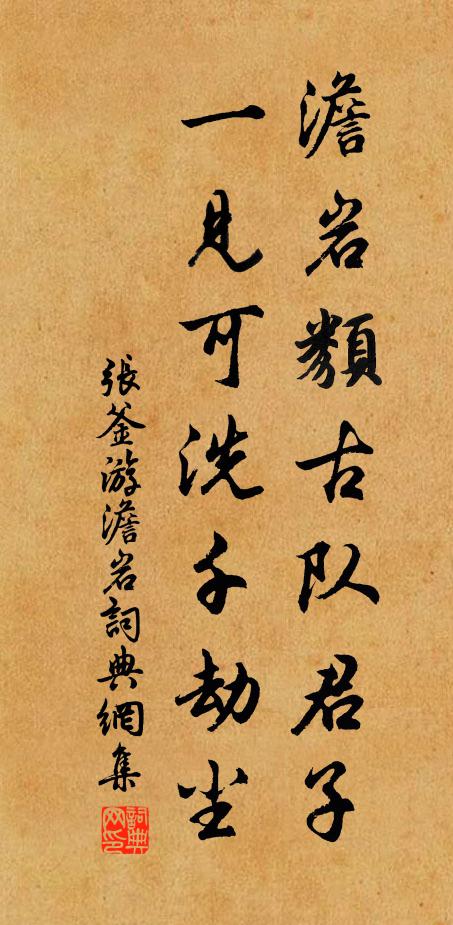 澹岩類古队君子
一見可洗千劫尘
張釜游澹岩詞典網集
詞典网印